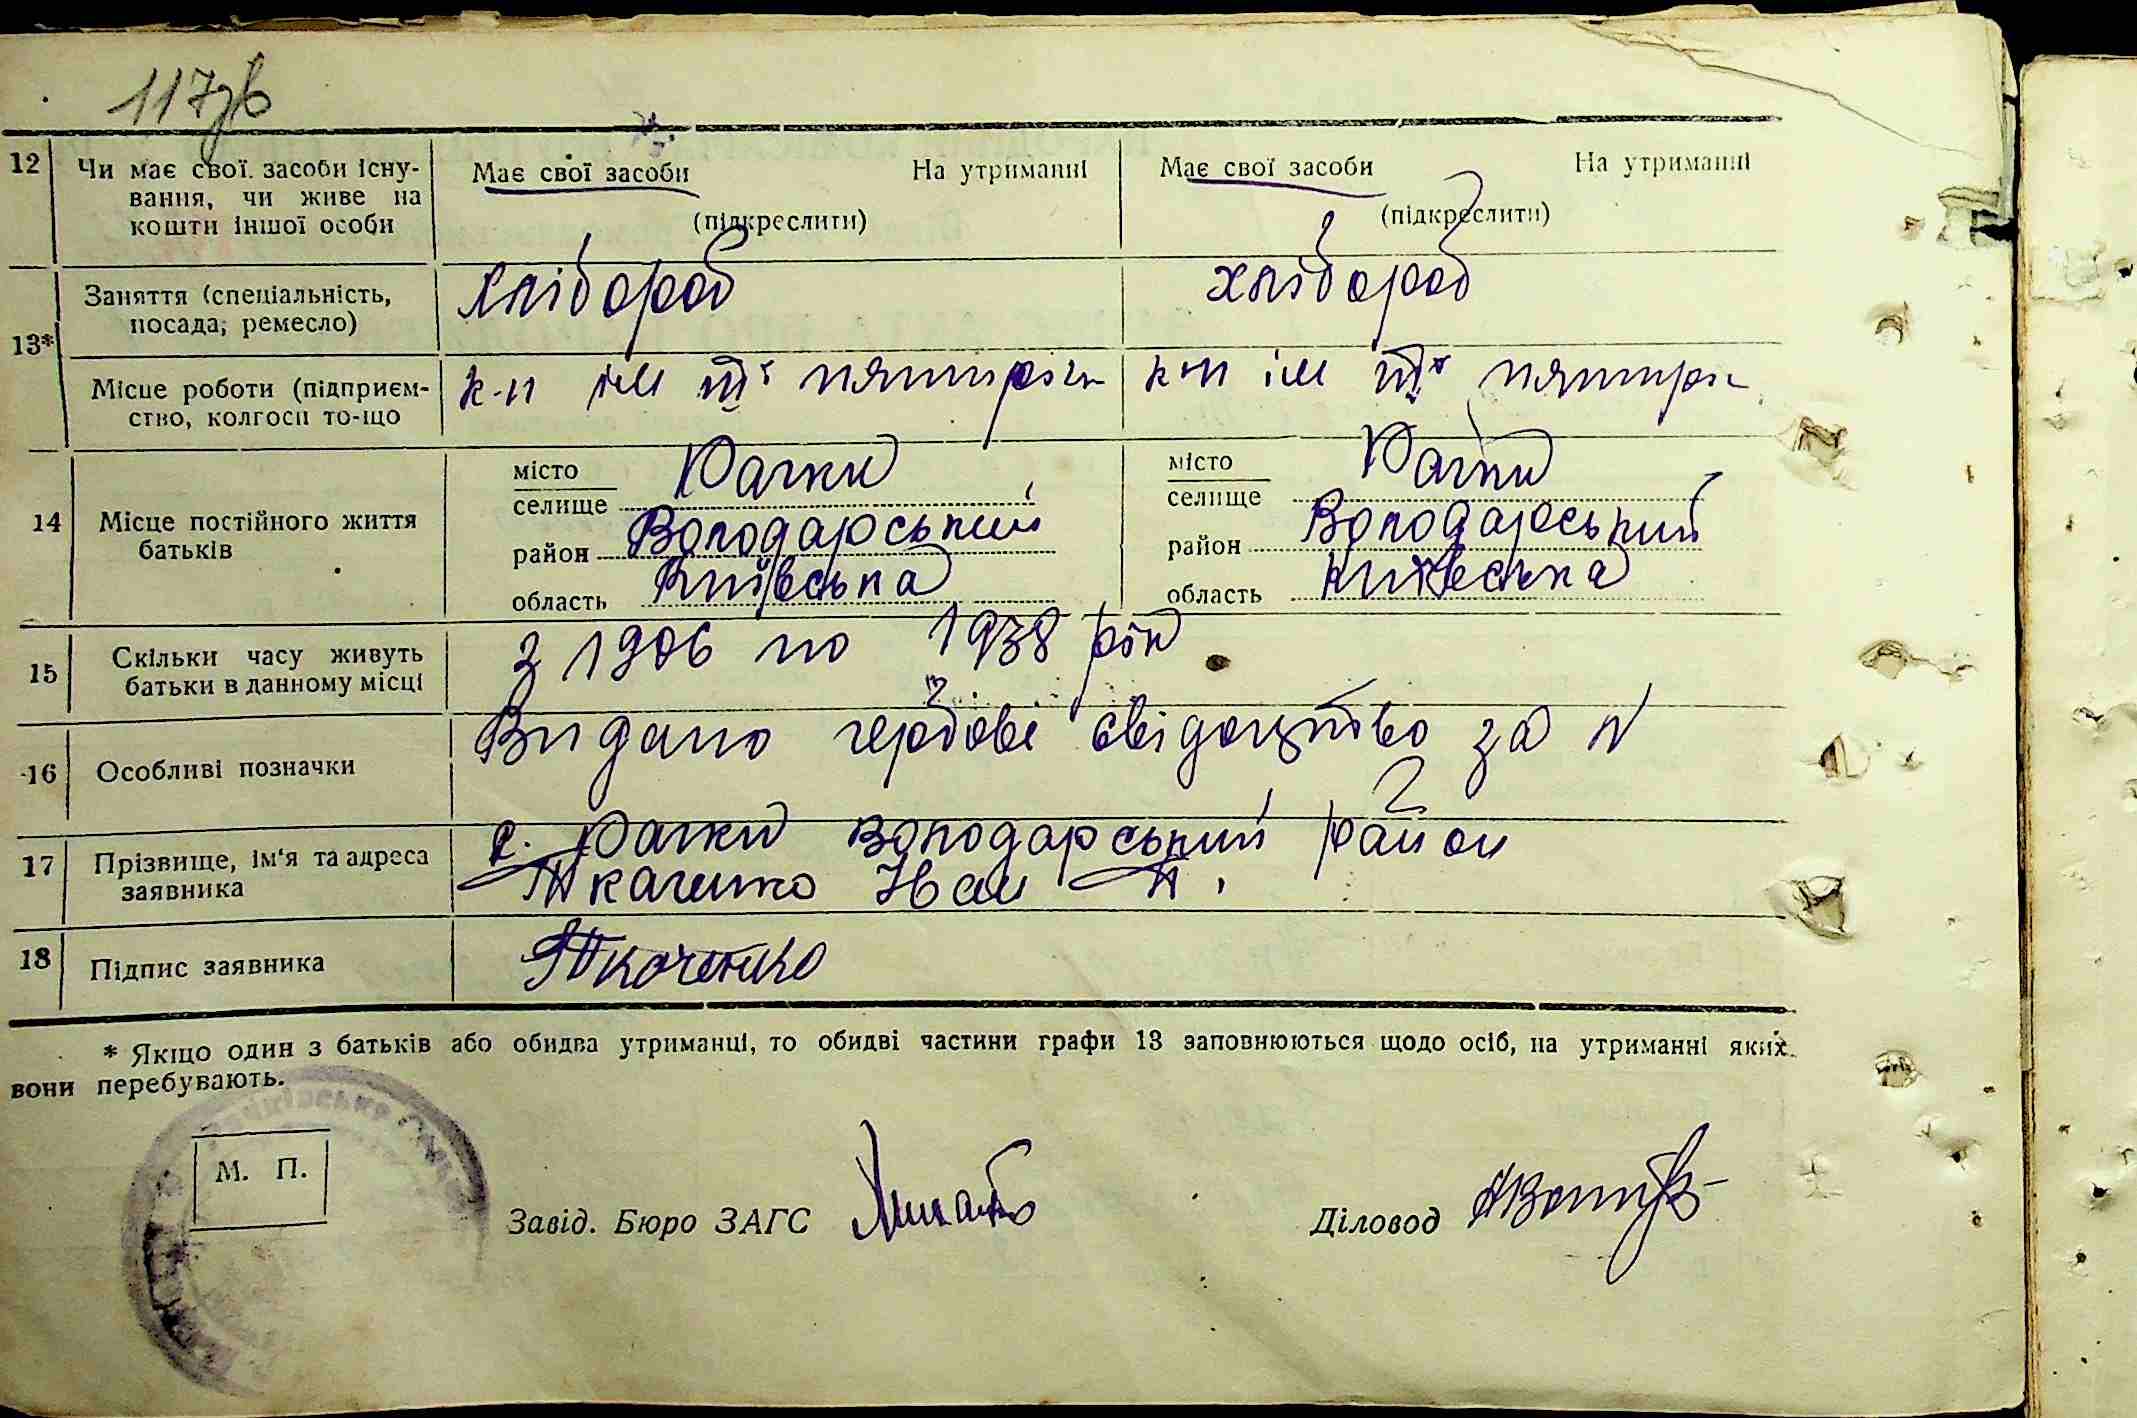 117зв
12 Чи має свої засоби існу- Має свої засоби На утриманні Має свої засоби На утриманні
вання, чи живе на
кошти іншої особи (підкреслити) (підкреслити)
13* Заняття (спеціальність, хлібороб хлібороб
посада, ремесло)
Місце роботи (підприєм- к-п ім ІІІ х пятирічк к-п ім ІІІ х пятирі
ство, колгосп то-що
14 Місце постійного життя батьків
місто Рачки місто Рачки
селище селище
район Володарський район Володарський
область Київська область Київська
15 Скільки часу живуть з 1906 по 1938 рік
батьки в данному місці
16 Особливі позначки Видано гербове свідоцтво за N
2
17 Прізвище, ім'я та адреса с. Рачки Володарський район
заявника Ткаченко Іван П.
18 Підпис заявника Ткаченко
* Якщо один з батьків або обидва утриманці, то обидві частини графи 13 заповнюються щодо осіб, на утриманні яких
вони перебувають.
М. П.
Завід. Бюро ЗАГС Діловод